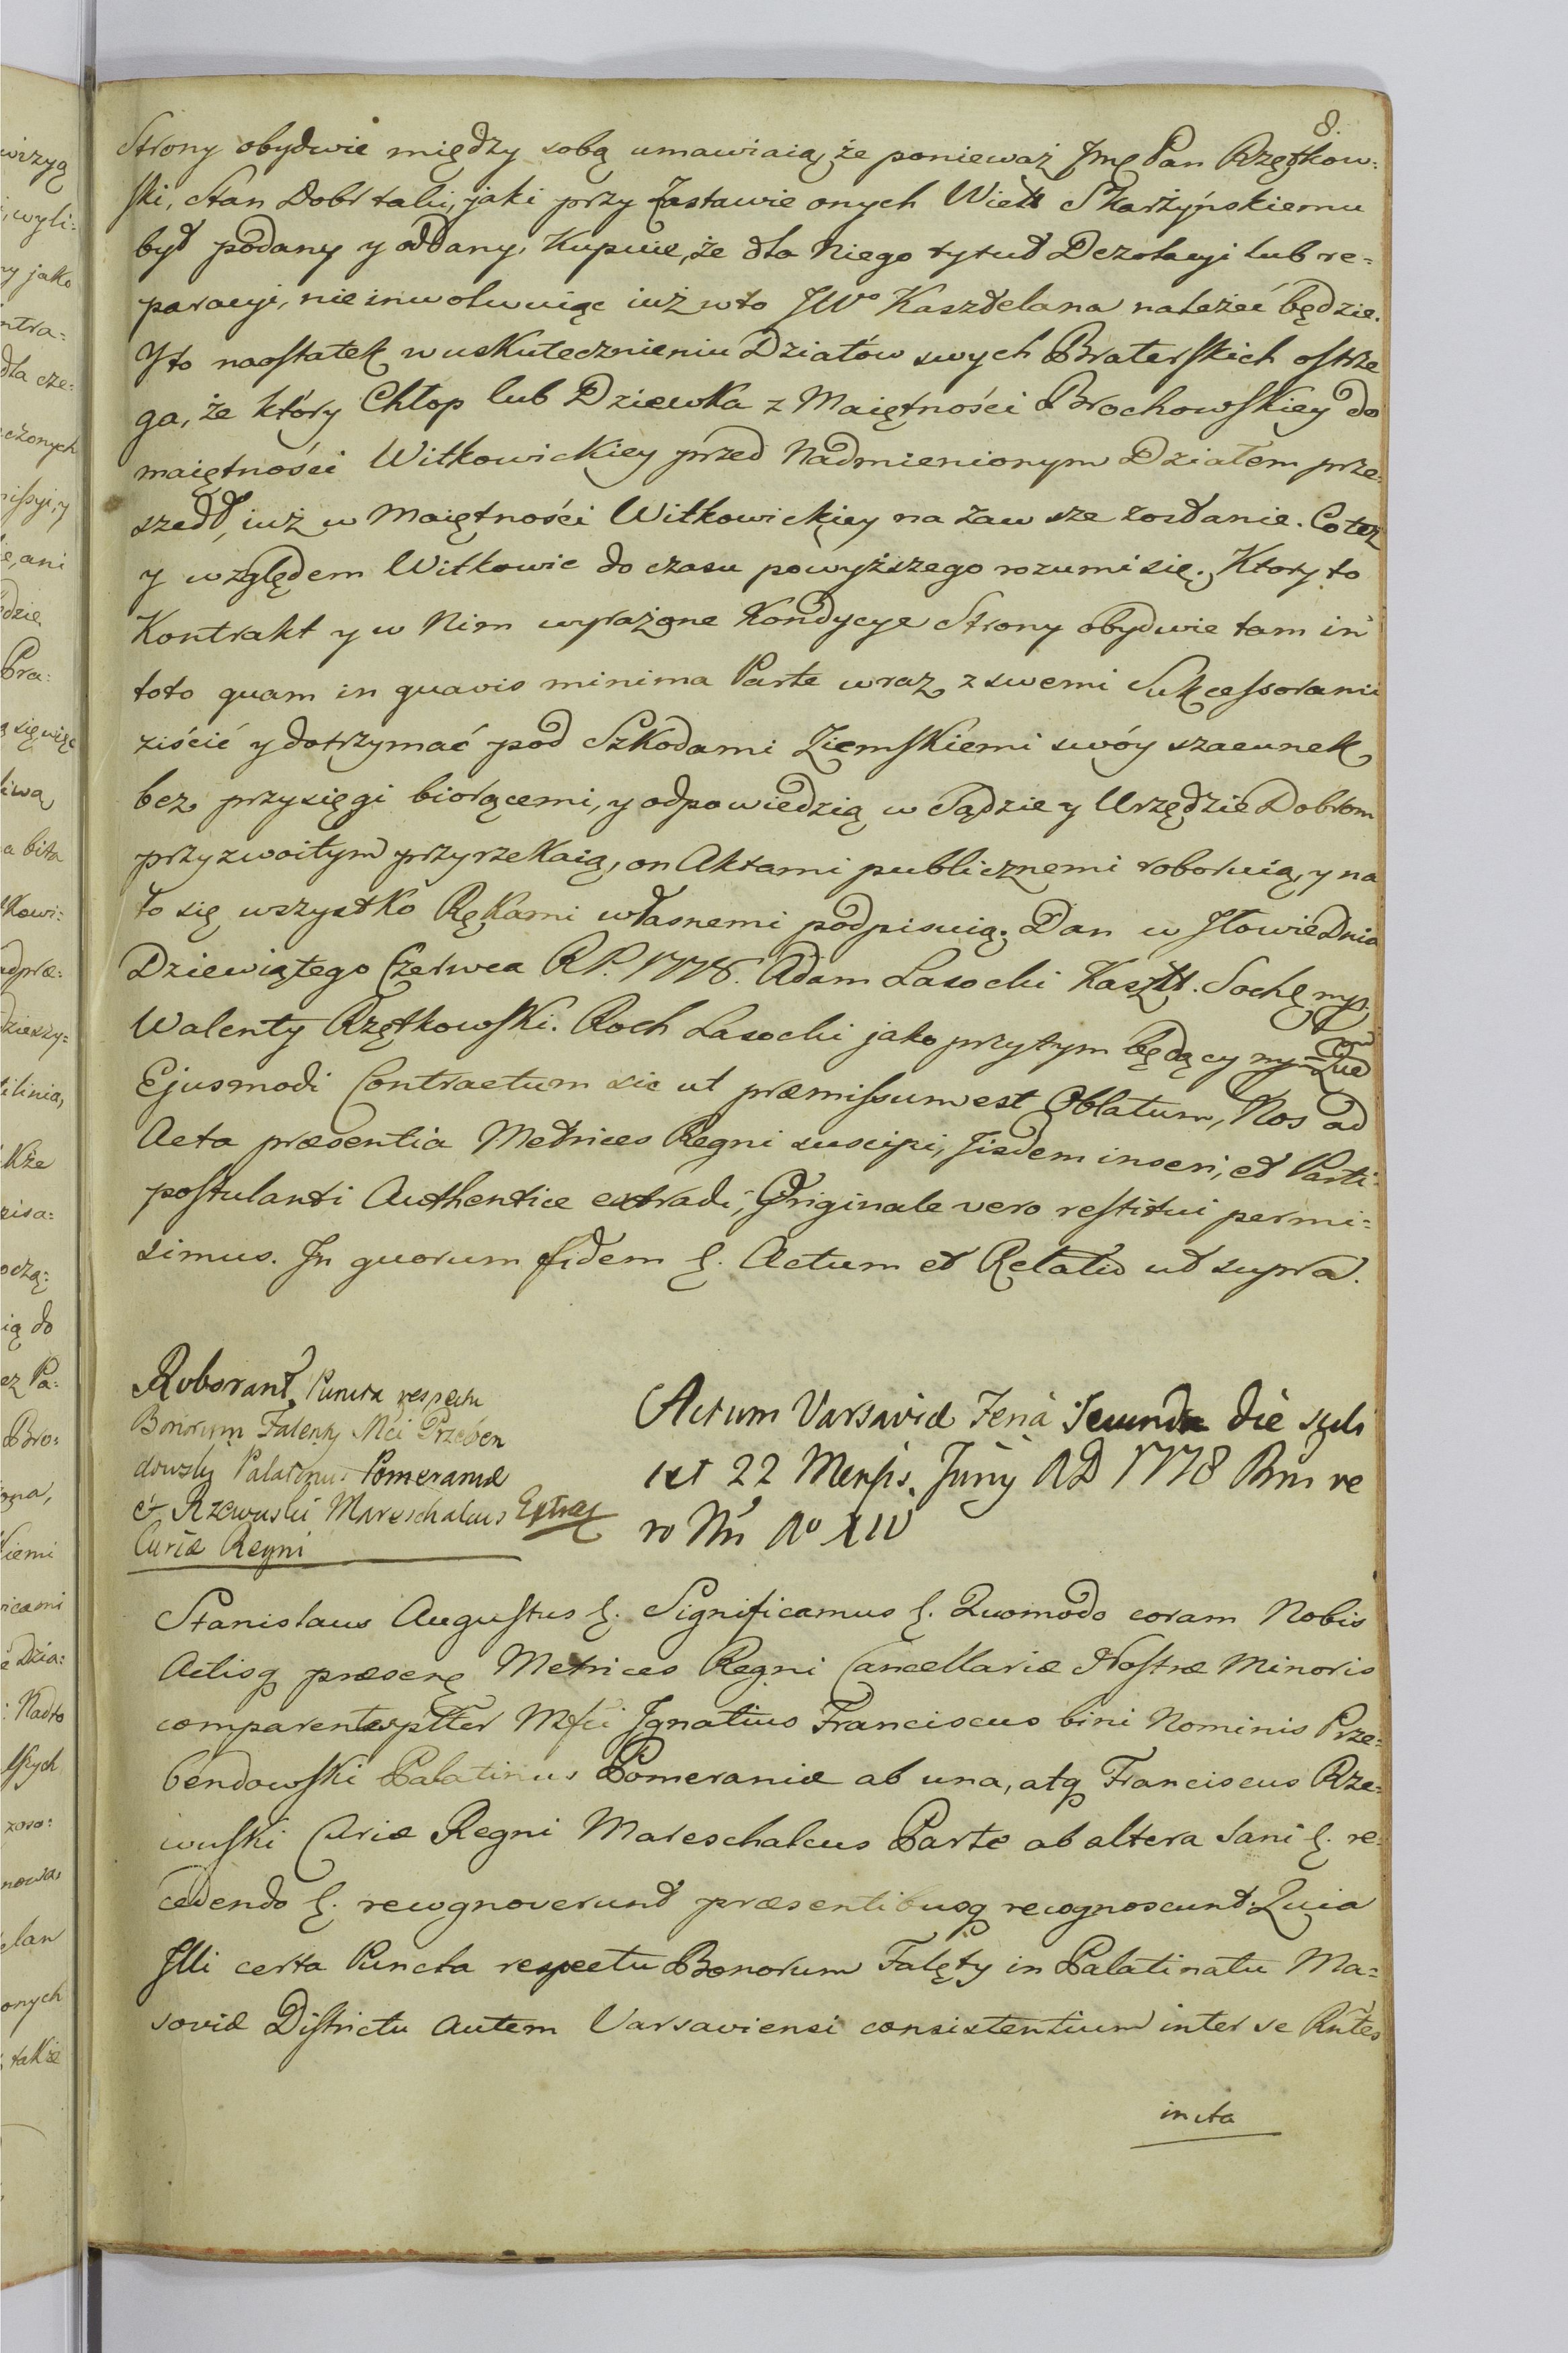 8.
Strony obydwie między sobą umawiaią, że ponieważ Jmę Pan Rzętkow:
ski, stan Dobr taki, jaki przy Zastawie onych Wielt Skarżyńskiemu
był podany y oddany, Kupuie, że dla Niego tytuł Dezolacyi lub re=
paracyi, nie inwolwuiąc iuż w to JWo Kasztelana należeć będzie.
Y to naostatek w uskutecznieniu Działów swych Braterskich ostrze
ga, że który Chłop lub Dziewka z Maiętności Brochowskiey do
maiętności Witkowickiey przed Nadmienionym Działem prze-
szedł, iuż w Maiętności Witkowickiey na zawsze zostanie. Co też
y względem Witkowic do czasu powyższego rozumi się. Ktory to
Kontrakt y w Nim wyrażone Kondycye Strony obydwie tam in
toto quam in quavis minima Parte wraz z swemi Sukcessorami
ziścić y dotrzymać pod Szkodami Ziemskiemi swóy szacunek
bez przysięgi biorącemi, y odpowiedzią w Sądzie y Urzędzie Dobrom
przyzwoitym przyrzekaią, on Aktami publicznemi roboruią, y na
to się wszystko Rękami własnemi podpisuią. Dan w Jłowie Dnia
Dziewiątego Czerwca RP. 1778. Adam Lasocki Kaszt. Soch mp.
Walenty Rzętkowski. Roch Lasocki jako przytym będący mp. Quod
Ejusmodi Contractum sic ut præmissum est Oblatum, Nos ad
Acta præsentia Metrices Regni suscipi, Jisdem inseri, et Parti
postulanti Authentice extradi, Originale vero restitui permi=
simus. In quorum fidem &. Actum et Relatio ut supra.
Roborant Puncta respectu
Bonorum Falenty Mci Przeben
dowski Palatinus Pomeraniæ
et Rzewuski Mareschalcus Extrad
Curiæ Regni
Actum Varsaviæ Feria Secunda die scili
cet 22 Mensis Junij AD 1778 Rni ve
ro Nri Ao XIV
Stanislaus Augustus &. Significamus &. Quomodo coram Nobis
Actisq præsen Metrices Regni Cancellariæ Nostræ Minoris
comparentes pltter Mfci Jgnatius Franciscus bini Nominis Prze=
bendowski Palatinus Pomeraniæ ab una, atq Franciscus Rze=
wuski Curiæ Regni Mareschalcus Parte ab altera Sani &. re=
cedendo &. recognoverunt præsentibusq recognoscunt Quia
Illi certa Puncta respectu Bonorum Falęty in Palatinatu Ma=
soviæ Districtu autem Varsaviensi consistentium inter se Rntes
incta